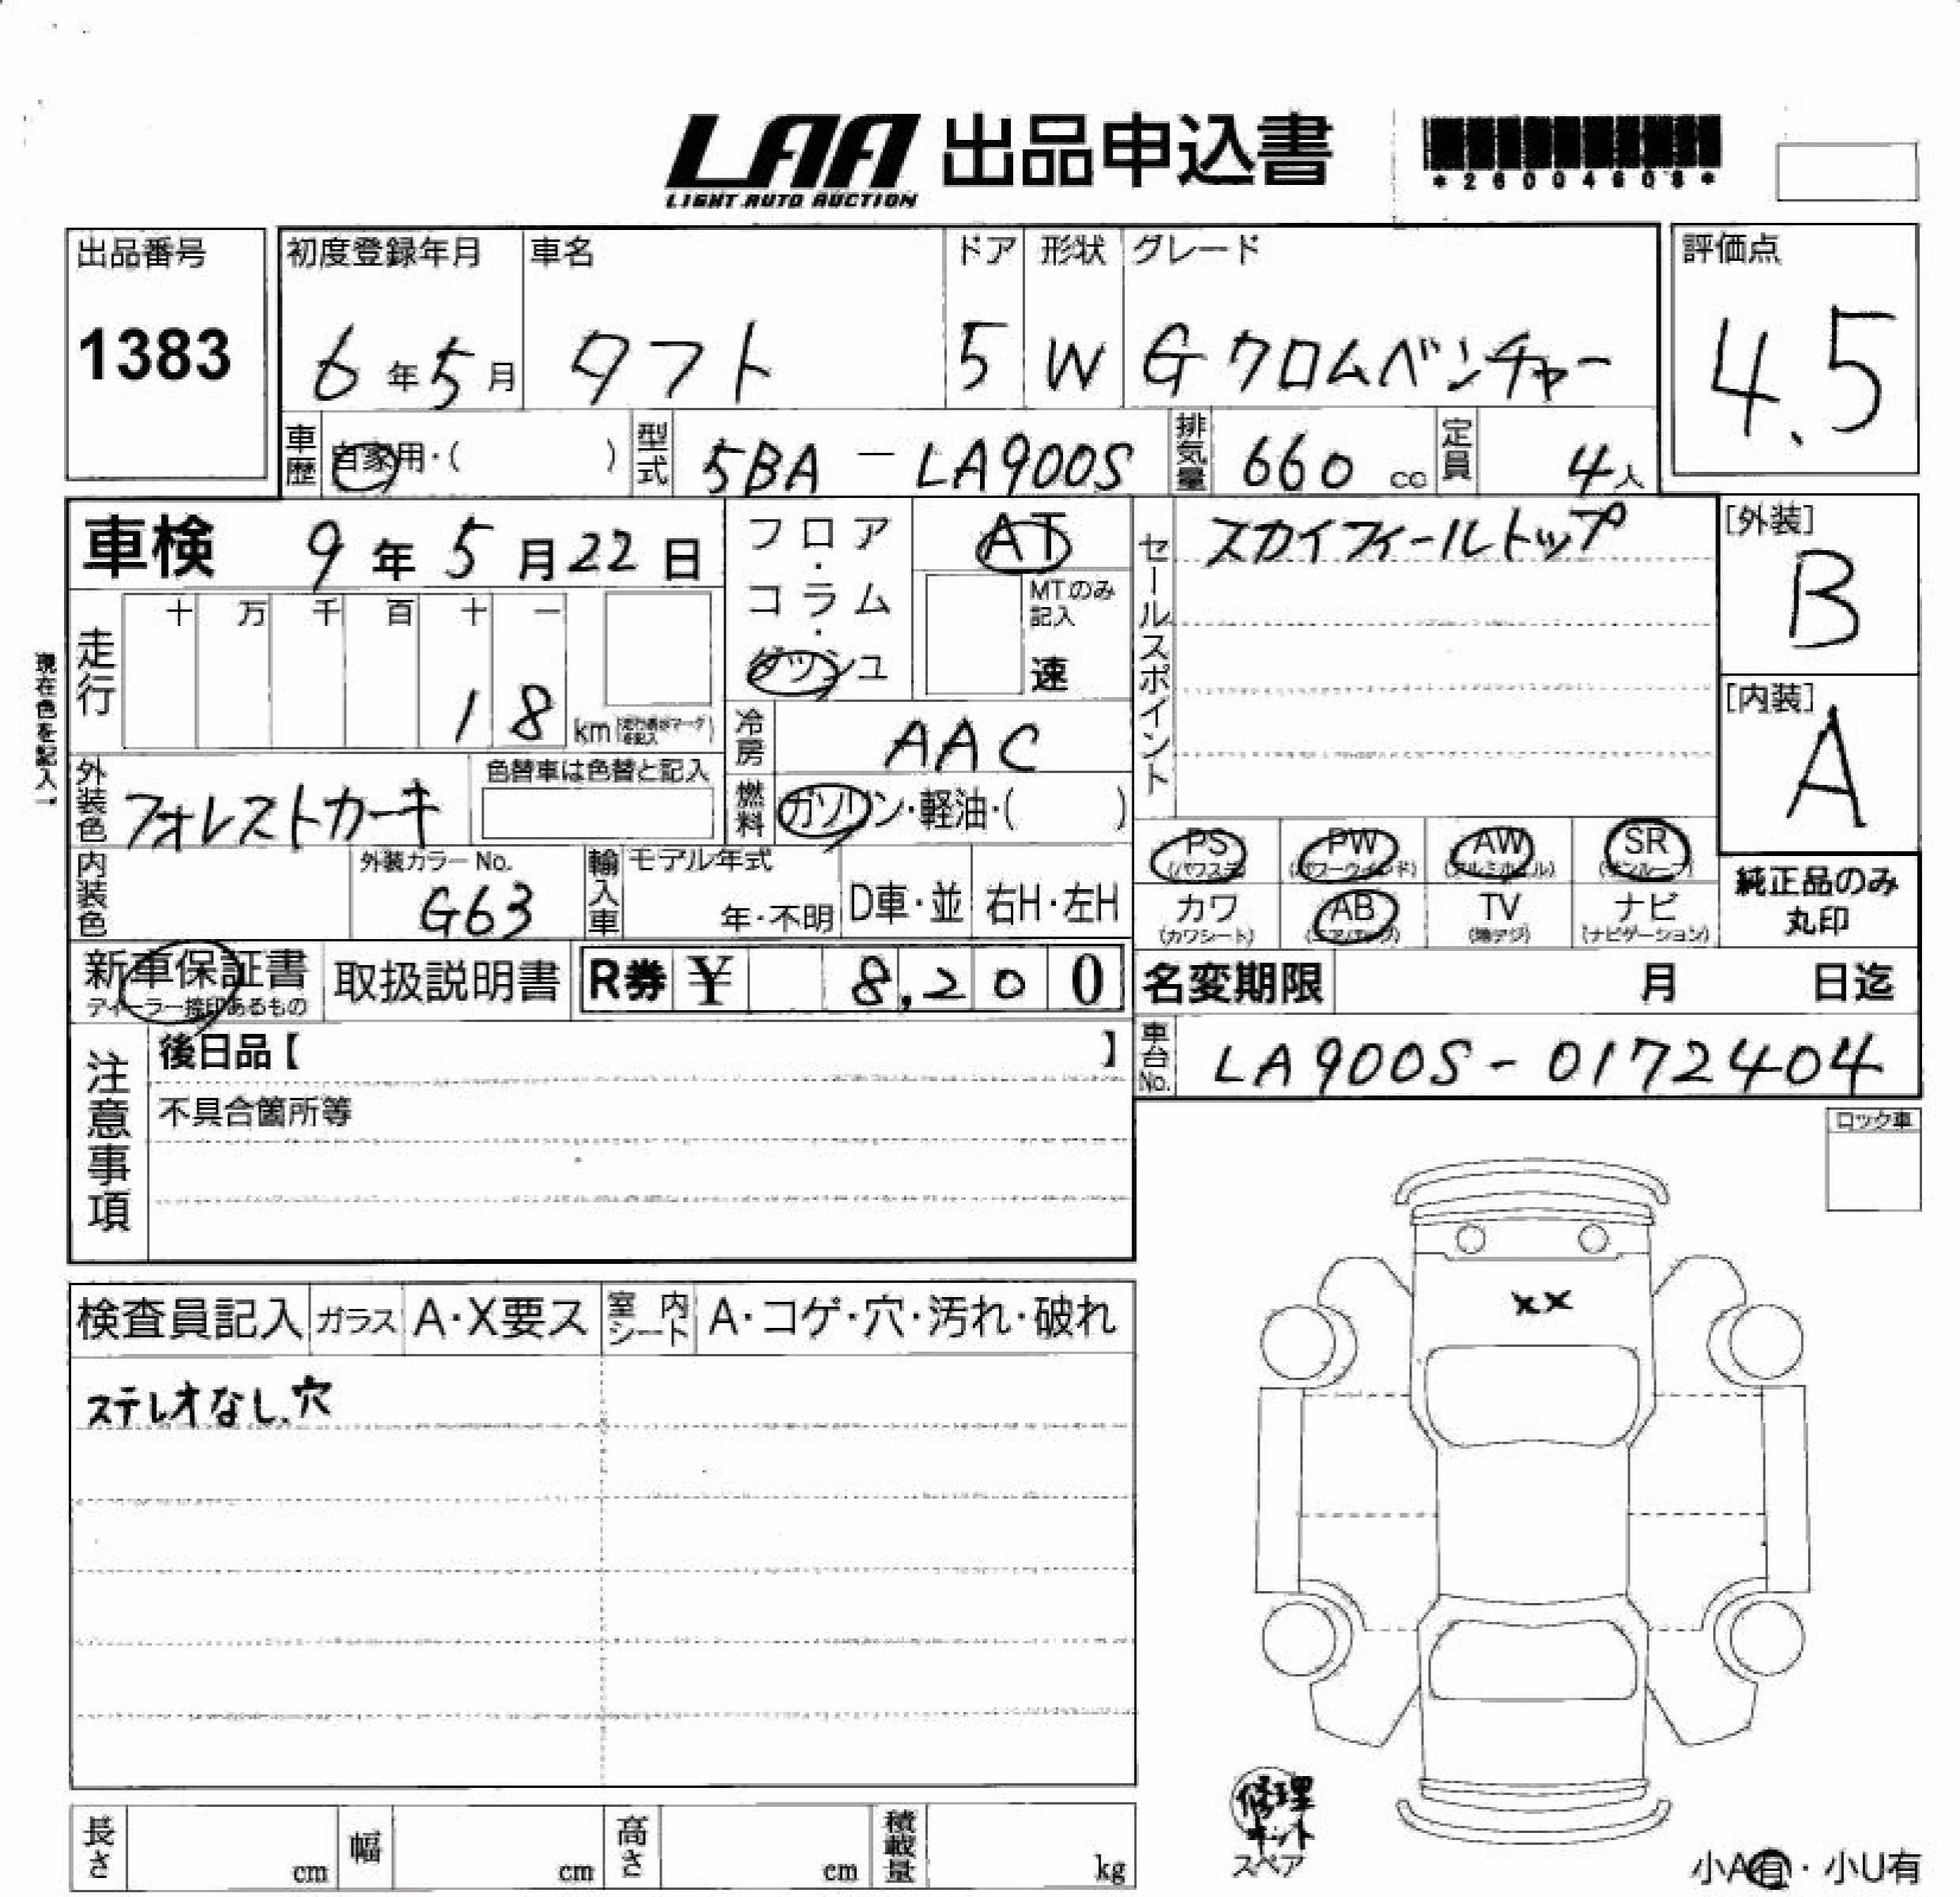 LAA 出品申込書
LIGHT AUTO AUCTION
*26004608*
出品番号
1383
初度登録年月
6年5月
車名
タフト
ドア
5
形状
W
グレード
Gクロムベンチャー
評価点
4.5
車歴
自家用・( )
型式
5BA-LA900S
排気量
660 cc
定員
4人
車検 9年5月22日
フロア・コラム・ダッシュ
AT
MTのみ記入
速
セールスポイント
スカイフィールトップ
[外装]
B
[内装]
A
現在色を記入
走行
十 万 千 百 十 一
18 km
冷房
AAC
外装色
フォレストカーキ
色替車は色替と記入
燃料
ガソリン・軽油・( )
PS (パワステ)
PW (パワーウインド)
AW (アルミホイル)
SR (サンルーフ)
カワ (カワシート)
AB (エアバッグ)
TV (地デジ)
ナビ (ナビゲーション)
純正品のみ丸印
内装色
外装カラーNo.
G63
輸入車
モデル年式
年・不明
D車・並
右H・左H
新車保証書
ディーラー捺印あるもの
取扱説明書
R券 ¥ 8,200
名変期限 月 日迄
車台No.
LA900S-0172404
注意事項
後日品【 】
不具合箇所等
ロック車
検査員記入
ガラス
A・X要ス
室内シート
A・コゲ・穴・汚れ・破れ
ステレオなし、穴
XX
修理キット
スペア
小A有・小U有
長さ cm
幅 cm
高さ cm
積載量 kg